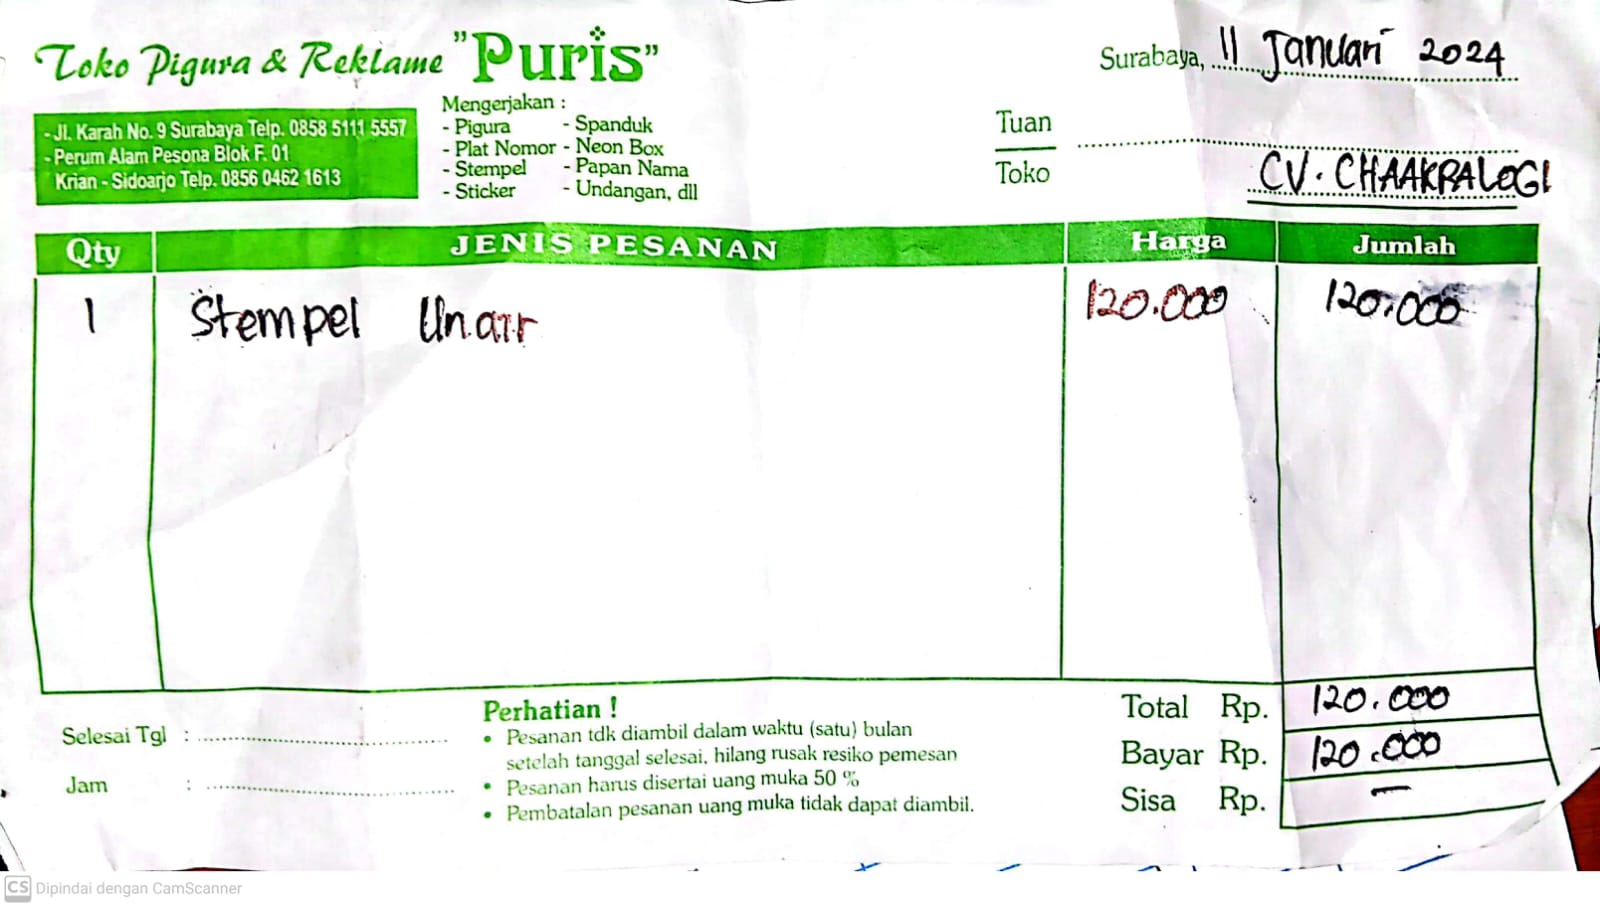 Toko Pigura & Reklame "Puris"
Surabaya, 11 Januari 2024
- Jl. Karah No. 9 Surabaya Telp. 0858 5111 5557
- Perum Alam Pesona Blok F. 01
Krian - Sidoarjo Telp. 0856 0462 1613
Mengerjakan :
- Pigura - Spanduk
- Plat Nomor - Neon Box
- Stempel - Papan Nama
- Sticker - Undangan, dll
Tuan
Toko CV. CHAAKRALOGI
Qty JENIS PESANAN Harga Jumlah
1 Stempel Unair 120.000 120.000
Selesai Tgl :
Jam :
Perhatian !
• Pesanan tdk diambil dalam waktu (satu) bulan
setelah tanggal selesai, hilang rusak resiko pemesan
• Pesanan harus disertai uang muka 50 %
• Pembatalan pesanan uang muka tidak dapat diambil.
Total Rp. 120.000
Bayar Rp. 120.000
Sisa Rp. -
CS Dipindai dengan CamScanner